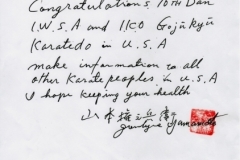 Congratulations, 10TH Dan
I.W.S.A and I.K.O Gojūkyū
Karatedo in U.S.A
make information to all
other Karate peoples in U.S.A
I hope keeping your health
山本
Yamamoto